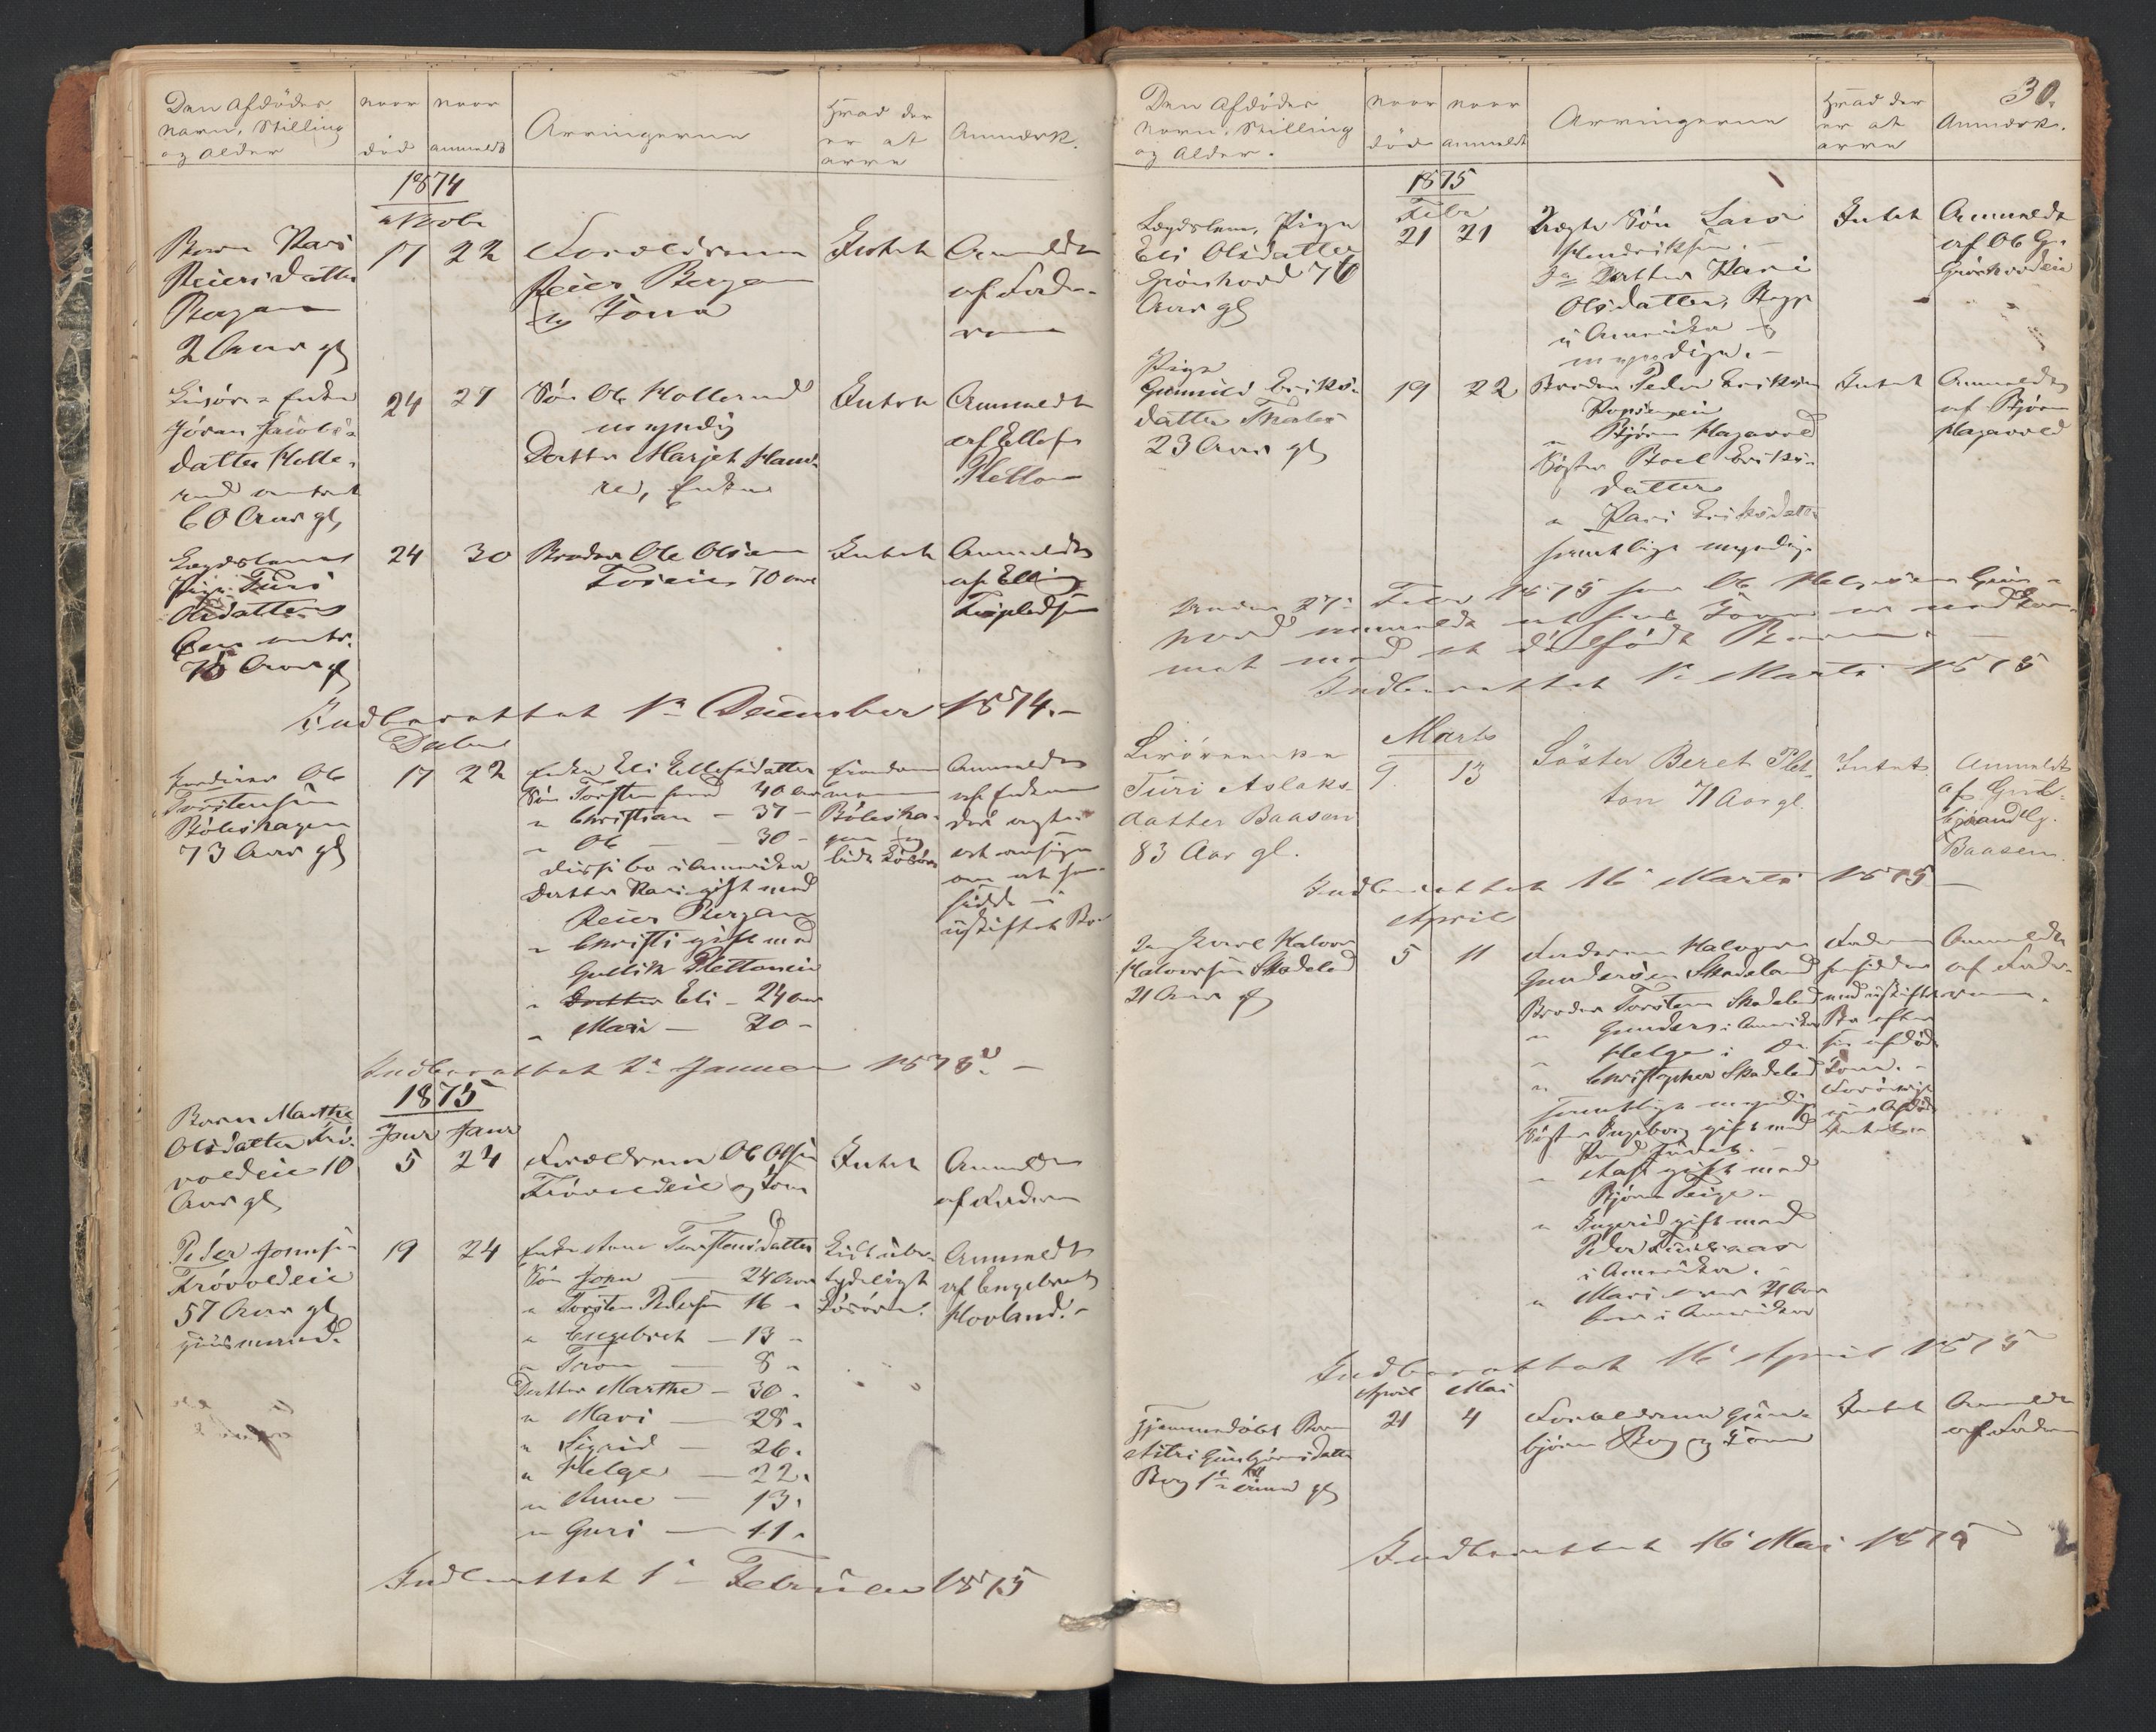 Den Afdødes
Navn, Stilling
og Alder
naar
død
naar
anmeldt
Arvingerne
Hvad der
er at
arve
Anmærk.
1874
Novbr
Barn Kari
Reiersdatter
Bergan
2 Aar gl
17
22
Forældrene
Reier Bergan
og Kone
Intet
Anmeldt
af Fade-
ren
Enke
Jøran Jacobs-
datter Holle-
rud omtrent
60 Aar gl
24
27
Søn Ole Hollerud
myndig
Datter Marjet
Enke
Intet
Anmeldt
af Ellef
Pletton
Lægdslemmet
Pige Turi
Olsdatter
omtr.
75 Aar gl
24
30
Broder Ole Olsen
70 Aar
Intet
Anmeldt
af Elling
Indberettet 1ste December 1874.-
Decbr
Gaardmand Ole
Torstensen
Bøleshagen
73 Aar gl
17
22
Enke Eli Ellefsdatter
Søn Torsten 40 Aar
" Christian - 37 -
" Ole - 30 -
disse bo i Amerika
Datter Kari gift med
Reier Bergan
" Christi gift med
Gullik Plettaneie
" Eli - 24 Aar
" Mari - 20 -
Eiendommen
Bøleshagen og
lidt Løsøre
Anmeldt
af Enken
der agter
at ansøge
om at hen-
sidde i
uskiftet Bo
Indberettet 2den Januar 1875. -
1875
Barn Marthe
Olsdatter Trø-
voldeie 10
Aar gl
Janr
5
Janr
24
Forældrene Ole Olsen
Trøvoldeie og Kone
Intet
Anmeldt
af Faderen
Peder Jonsen
Trøvoldeie
57 Aar gl
Huusmand.
19
24
Enke Anne Torstensdatter
Søn John - 24 Aar
" Torsten Pedersen 16 "
" Engebret - 13 -
" Tron - 8 "
Datter Marthe - 30 "
" Mari - 28 "
" Sigrid - 26 "
" Helge - 22 "
" Anne - 13 "
" Guri - 11 "
Lidt ube-
tydeligt
Løsøre.
Anmeldt
af Engebret
Hovland.-
Indberettet 1ste Februar 1875
30.
Den Afdødes
Navn, Stilling
og Alder.
naar
død
naar
anmeldt
Arvingerne
Hvad der
er at
arve
Anmærk.
1875
Febr
Lægdslem, Pige
Eli Olsdatter
Grønhovd 76
Aar gl
21
21
Uægte Søn Lars
Hendriksen.-
Do Datter Kari
Olsdatter, Begge
i Amerika og
myndige.-
Intet
Anmeldt
af Ole G.
Grønhovdeie
Pige
Gunild Eriks-
datter
23 Aar gl
19
22
Broder Peder Eriksen
" Bjørn Hagavold
Søster Boel Eriks-
datter
" Kari Eriksdatter
samtlige myndige
Intet
Anmeldt
af Bjørn
Hagavold
Under 27de Febr 1875 har Ole Helgesen Grøn-
hovd anmeldt at hans Kone er nedkom-
met med et dødfødt Barn. -
Indberettet 1ste Marts 1875
Marts
Turi Aslaks
datter Baasen
83 Aar gl.
9.
13
Søster Beret Plet-
ton 71 Aar gl.
Intet
Anmeldt
af Gul-
brand Eg.
Baasen.
Indberettet 16de Marts 1875. -
April
Ungkarl Halvor
Halvorsen Skadeland
21 Aar gl
5
11
Faderen Halvor
Gundersen Skadeland
Broder Torsten Skadeland
" Gunder i Amerika
" Helge i Do
" Christopher Skadeland
samtlige myndige
Søster Ingeborg gift med
" Aase gift med
Bjørn Teige -
" Ingerid gift med
Peder
i Amerika. -
" Mari 21 Aar
bor i Amerika
Faderen
hensidder
med uskiftet
Bo efter
sin afdøde
Kone. -
Intet
Anmeldt
af Fade-
ren.
Indberettet 16de April 1875
April
Mai
Hjemmedøbt Barn
Astri Gunbjørnsdatter
Berg gl
21
4
Forældrene Gun-
bjørn Berg og Kone
Intet
Anmeldt
af Faderen
Indberettet 16de Mai 1875